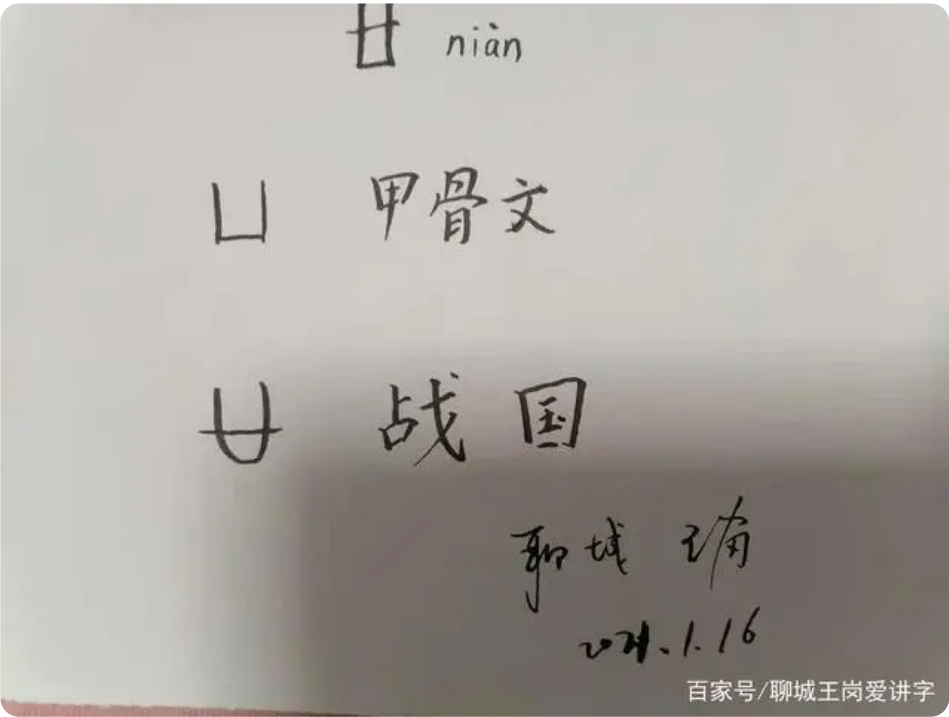 廿 niàn
凵 甲骨文
廿 战国
聊城 王岗
2021.1.16
百家号/聊城王岗爱讲字